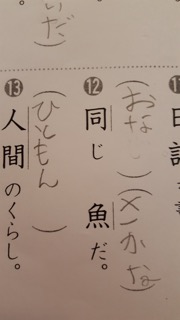 いだ)
(おな)(さかな)
⑫同じ魚だ。
(ひともん)
⑬人間のくらし。